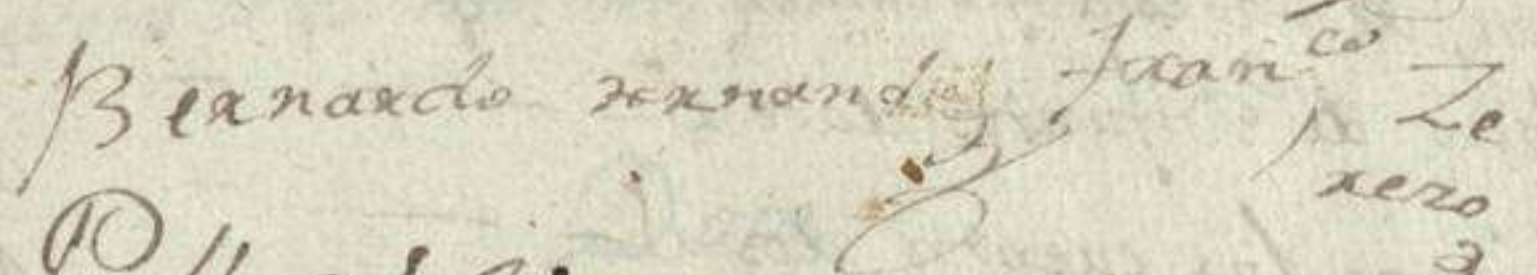 Bernardo Hernandez Fran.co Ze
rero